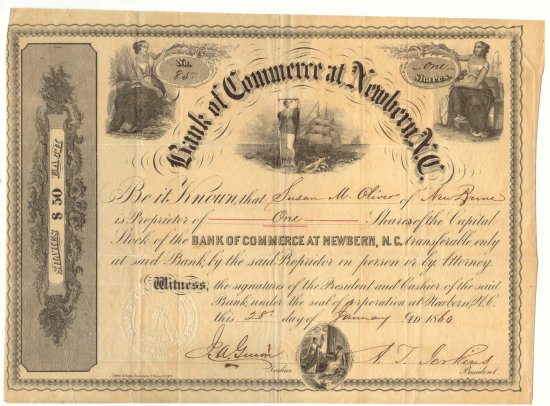 No. 85.
One Shares.
Bank of Commerce at Newbern, N.C.
SHARES $50 EACH
Be it Known that Susan M. Oliver of New Berne
is Proprietor of One Shares of the Capital
Stock of the BANK OF COMMERCE AT NEWBERN, N.C. transferable only
at said Bank, by the said Proprietor in person or by Attorney.
Witness, the signature of the President and Cashier of the said
Bank, under the seal of corporation at Newbern N.C.
this 28th day of January AD 1860
J.A. Guion A. T. Jerkins
Cashier President.